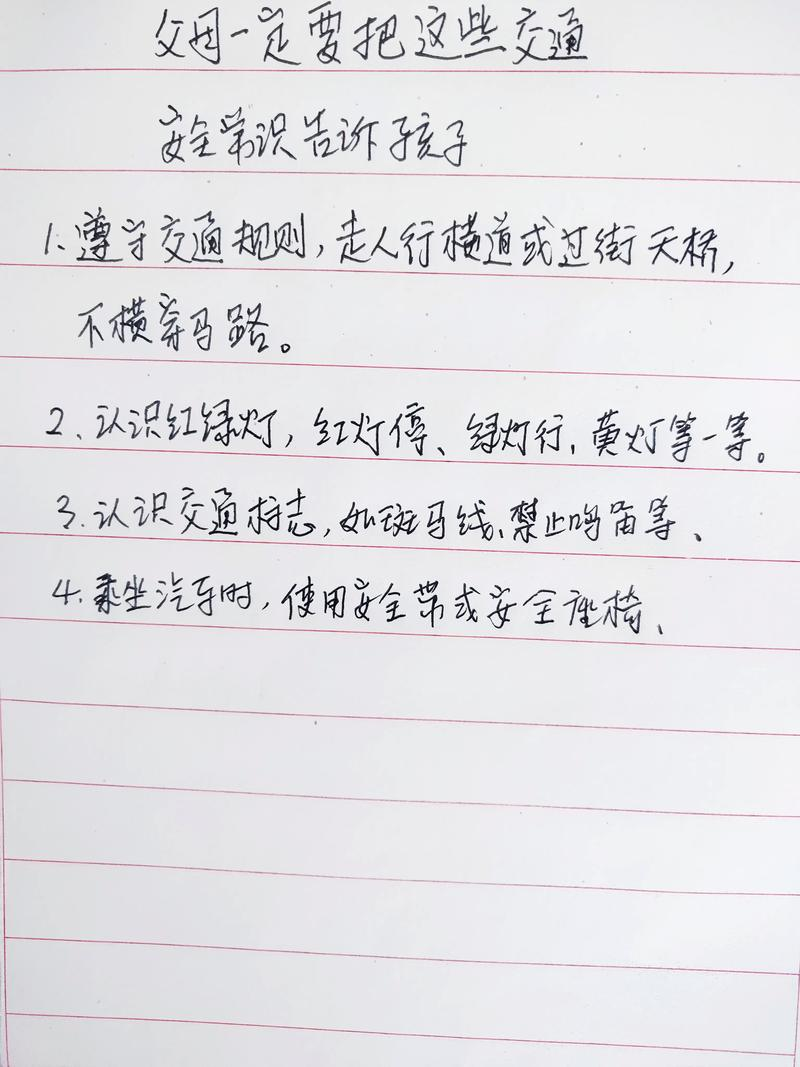 父母一定要把这些交通
安全常识告诉孩子
1、遵守交通规则，走人行横道或过街天桥，
不横穿马路。
2、认识红绿灯，红灯停、绿灯行，黄灯等一等。
3、认识交通标志，如斑马线、禁止鸣笛等、
4、乘坐汽车时，使用安全带或安全座椅、